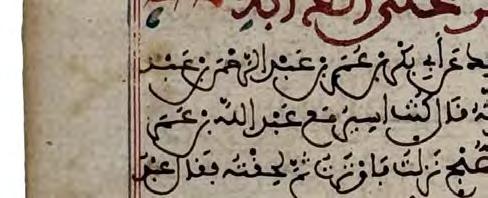 صلى الله
عن أبي بكر بن عمر بن عبد الرحمن بن عبد
قال كنت أسير مع عبد الله بن عمر
الصبح نزلت فأوترت ثم لحقته فقال عبد